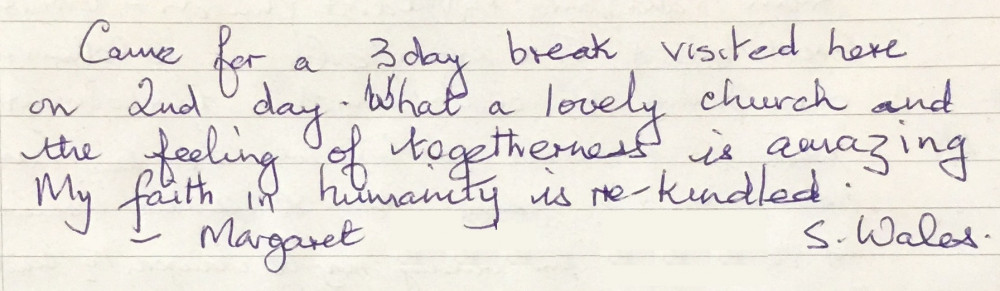 Came for a 3day break visited here
on 2nd day. What a lovely church and
the feeling of togetherness is amazing
My faith in humanity is re-kindled.
- Margaret S. Wales.